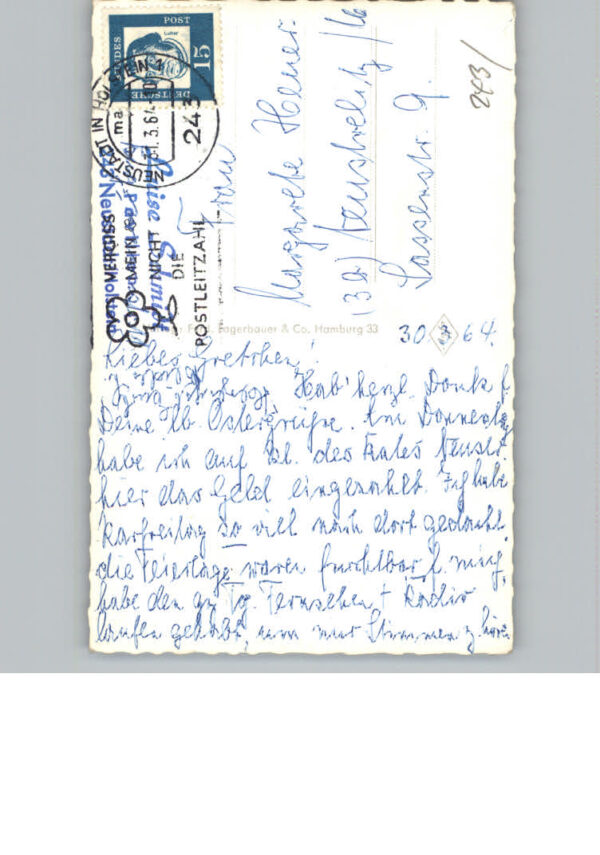 DEUTSCHE BUNDESPOST
15
Luther
NEUSTADT IN HOLSTEIN 1
243
VERGISS
MEIN
NICHT
DIE
POSTLEITZAHL
Luise Schmidt
Frau
Margarete
(3a) Neustrelitz /
Sassenstr. 9.
243/
Fagerbauer & Co., Hamburg 33
30 64.
Liebes Gretchen!
Hab' herzl. Dank f.
Deine lb. Ostergrüße. Am Donnerstag
habe ich auf des Rates Neustr.
hier das Geld eingezahlt. Ich habe
Karfreitag so viel nach dort gedacht.
die Feiertage waren furchtbar f. mich,
habe den gz. Tg. Fernsehen + Radio
laufen gehabt, um nur Stimmen z. hören